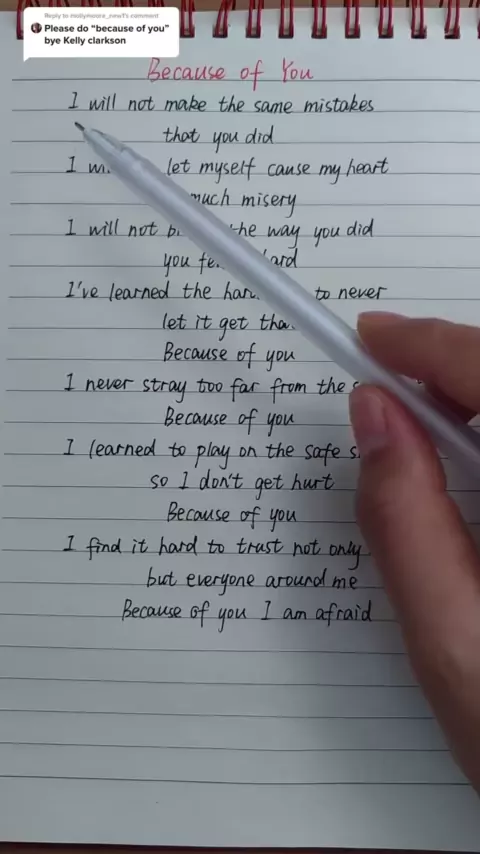 Reply to mollymoore_new1's comment
Please do “because of you”
bye Kelly clarkson
Because of You
I will not make the same mistakes
that you did
I let myself cause my heart
much misery
I will not the way you did
you
I've learned the to never
let it get
Because of you
I never stray too far from the
Because of you
I learned to play on the safe
so I don't get hurt
Because of you
I find it hard to trust not only
but everyone around me
Because of you I am afraid